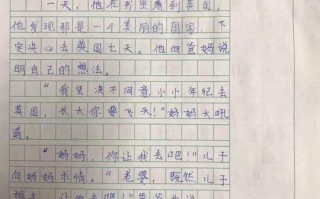 一天，他在书里看到英国，
他发现那是一个美丽的国家，下
定决心去英国七天。他向爸妈说
明自己的想法。
“我坚决不同意小小年纪去
英国，长大你要飞天！”妈妈大吼
道。
“妈妈，你让我去吧！”儿子
向妈妈求情。“老婆，既然儿子
想去，让他去吧！”爸爸也说